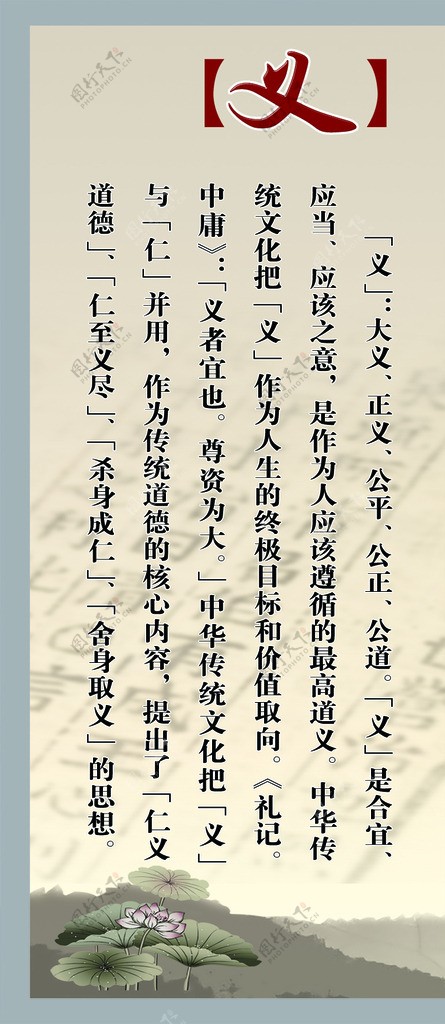 【义】
「义」:大义、正义、公平、公正、公道。「义」是合宜、
应当、应该之意，是作为人应该遵循的最高道义。中华传
统文化把「义」作为人生的终极目标和价值取向。《礼记。
中庸》:「义者宜也。尊资为大。」中华传统文化把「义」
与「仁」并用，作为传统道德的核心内容，提出了「仁义
道德」、「仁至义尽」、「杀身成仁」、「舍身取义」的思想。